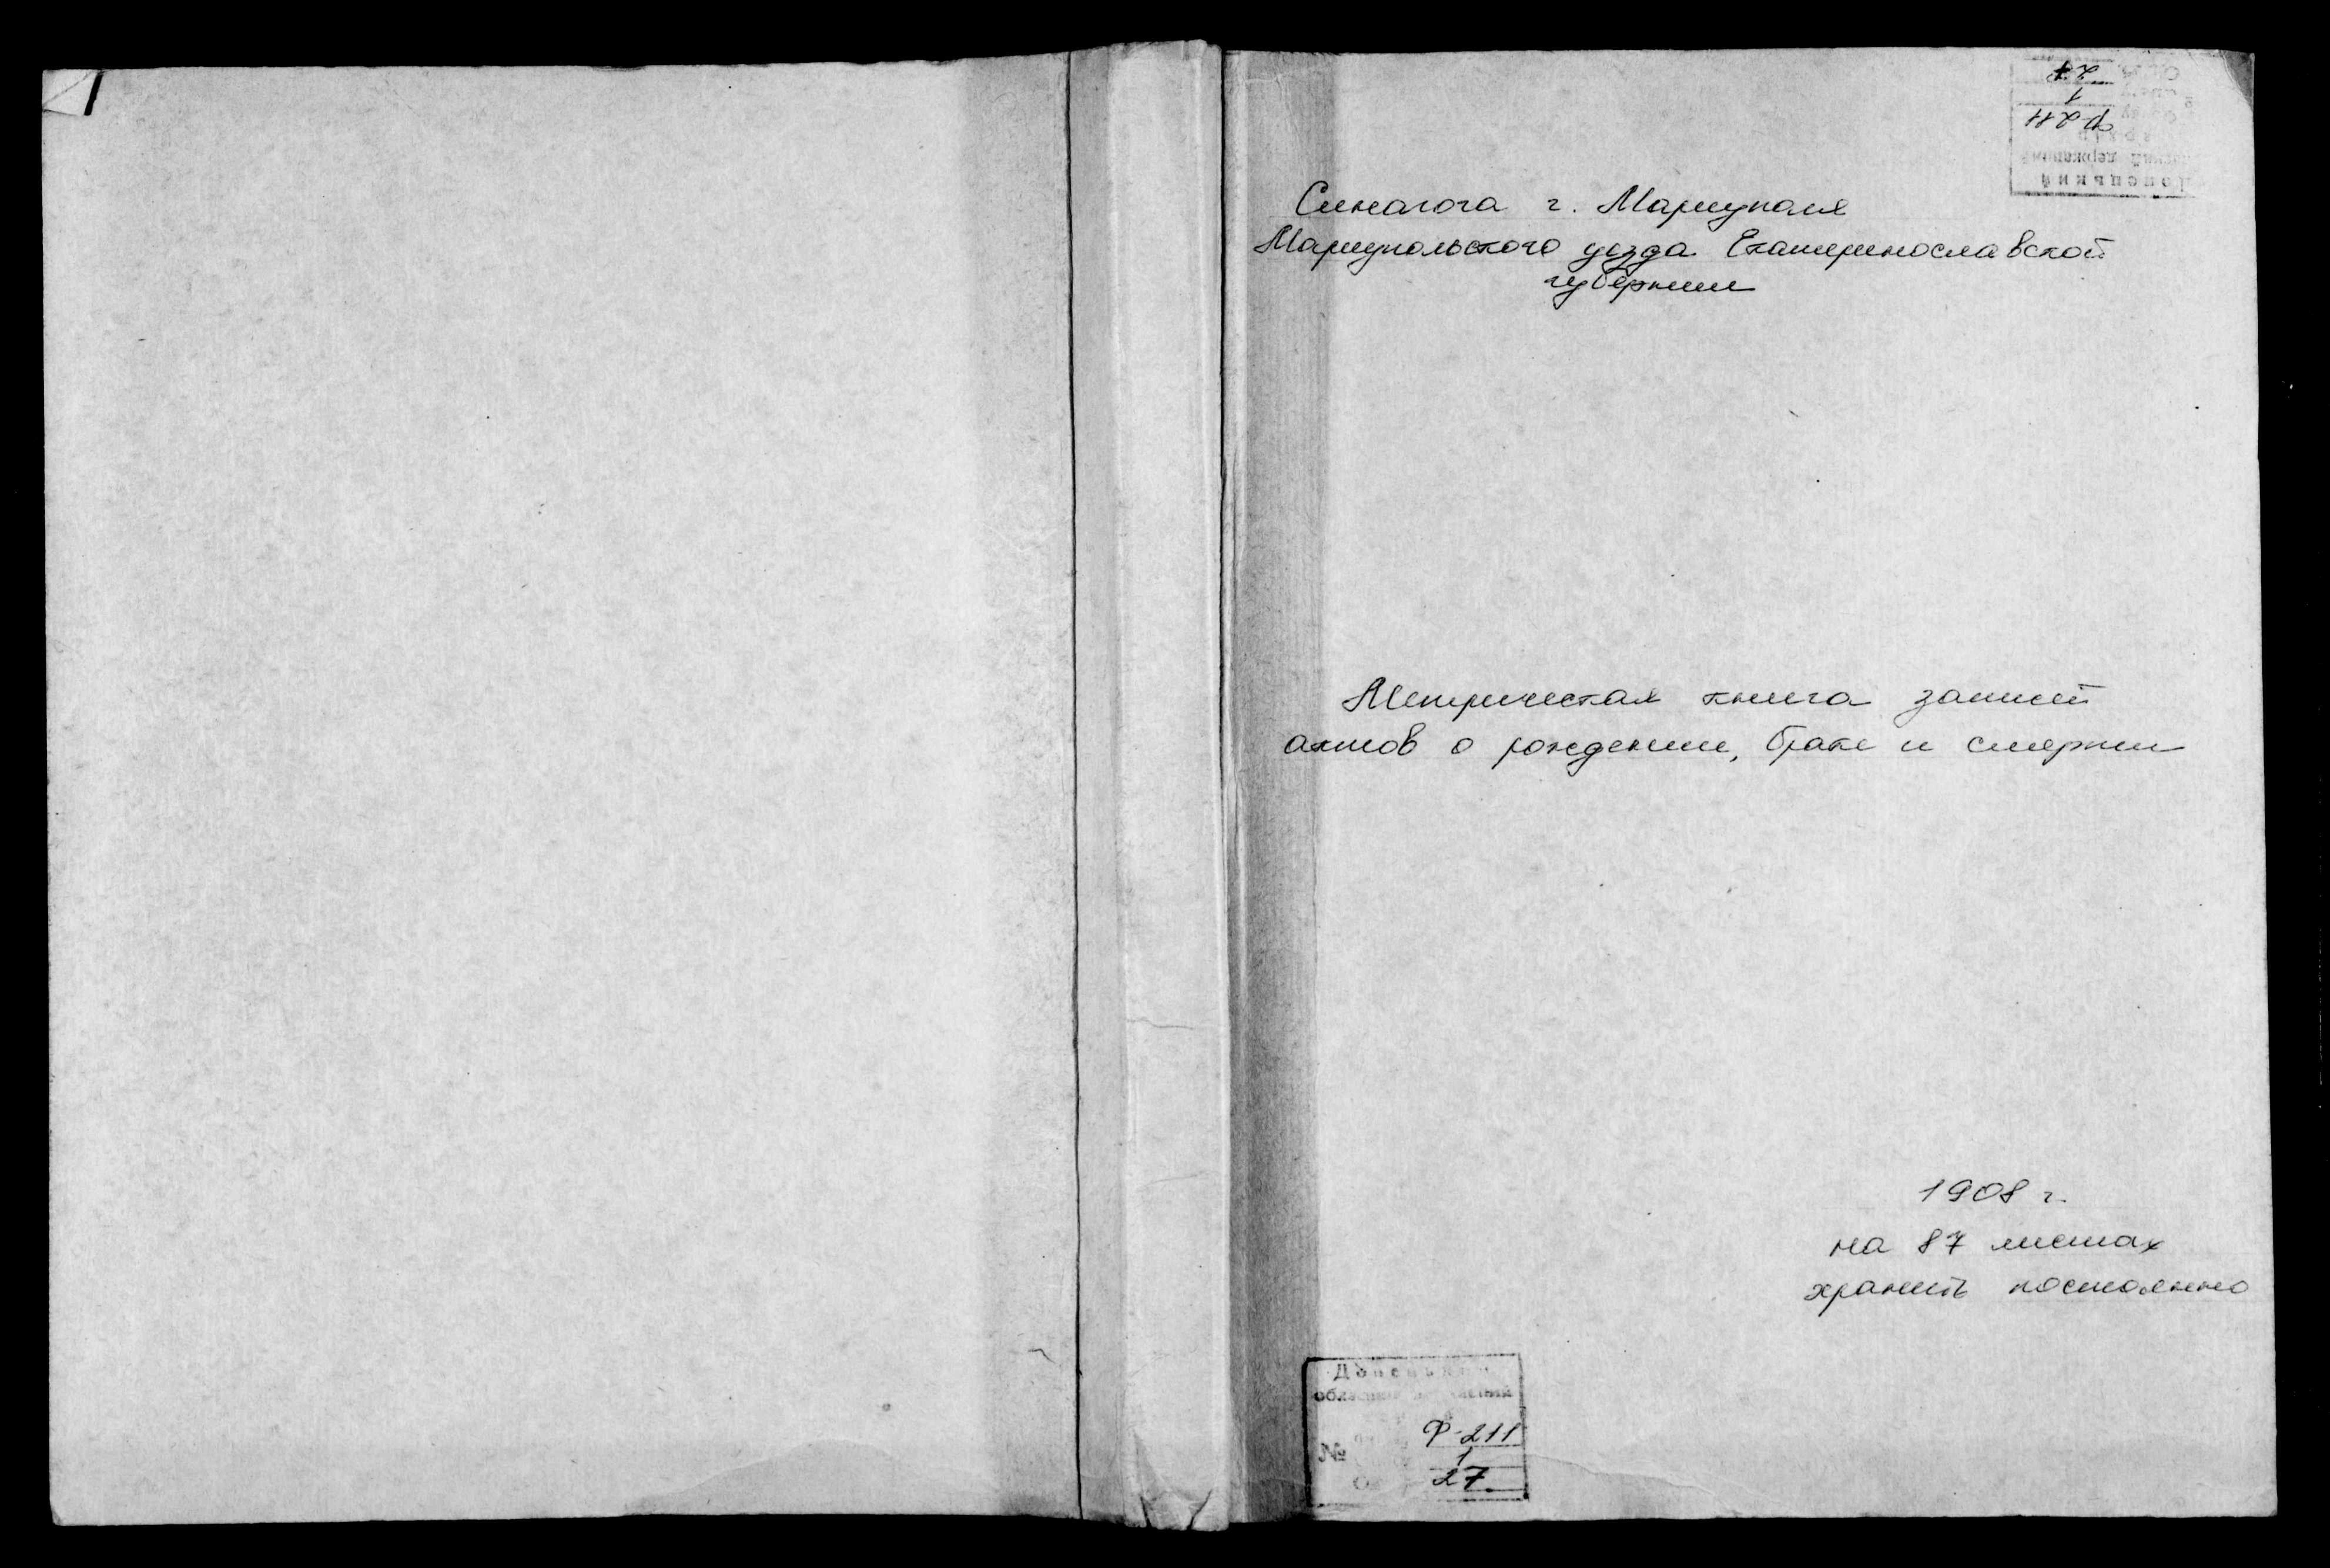 Синагога г. Мариуполя
Мариупольского уезда Екатеринославской
губернии
Метрическая книга записей
актов о рождении, браке и смерти
1908 г.
на 87 листах
хранить постоянно
№
Ф-211
1
27
Донецький
державний
Ф-211
1
27